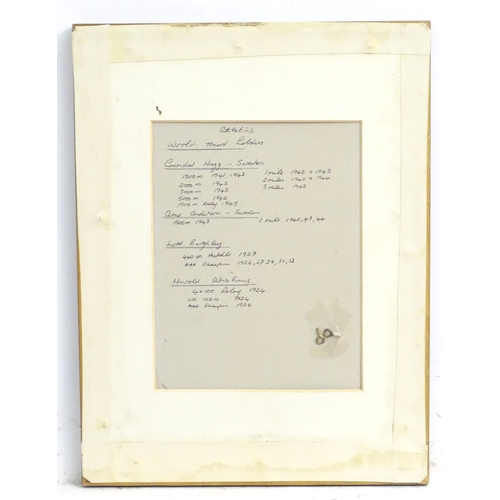 Athletics
World Record Holders
Gunder Hagg - Sweden
1500m 1941, 1942 1 mile 1942 + 1945
2000m 1942 2 miles 1942 + 1944
3000m 1942 3 miles 1942
5000m 1942
1500m Relay 1945
Arne Anderson - Sweden
1500m 1943 1 mile 1942, 43, 44
Lord Burghley
440 yd Hurdles 1927
AAA Champion 1926, 27 28, 30, 32
Harold Abrahams
4x100 Relay 1924
100m 1924
AAA Champion 1924